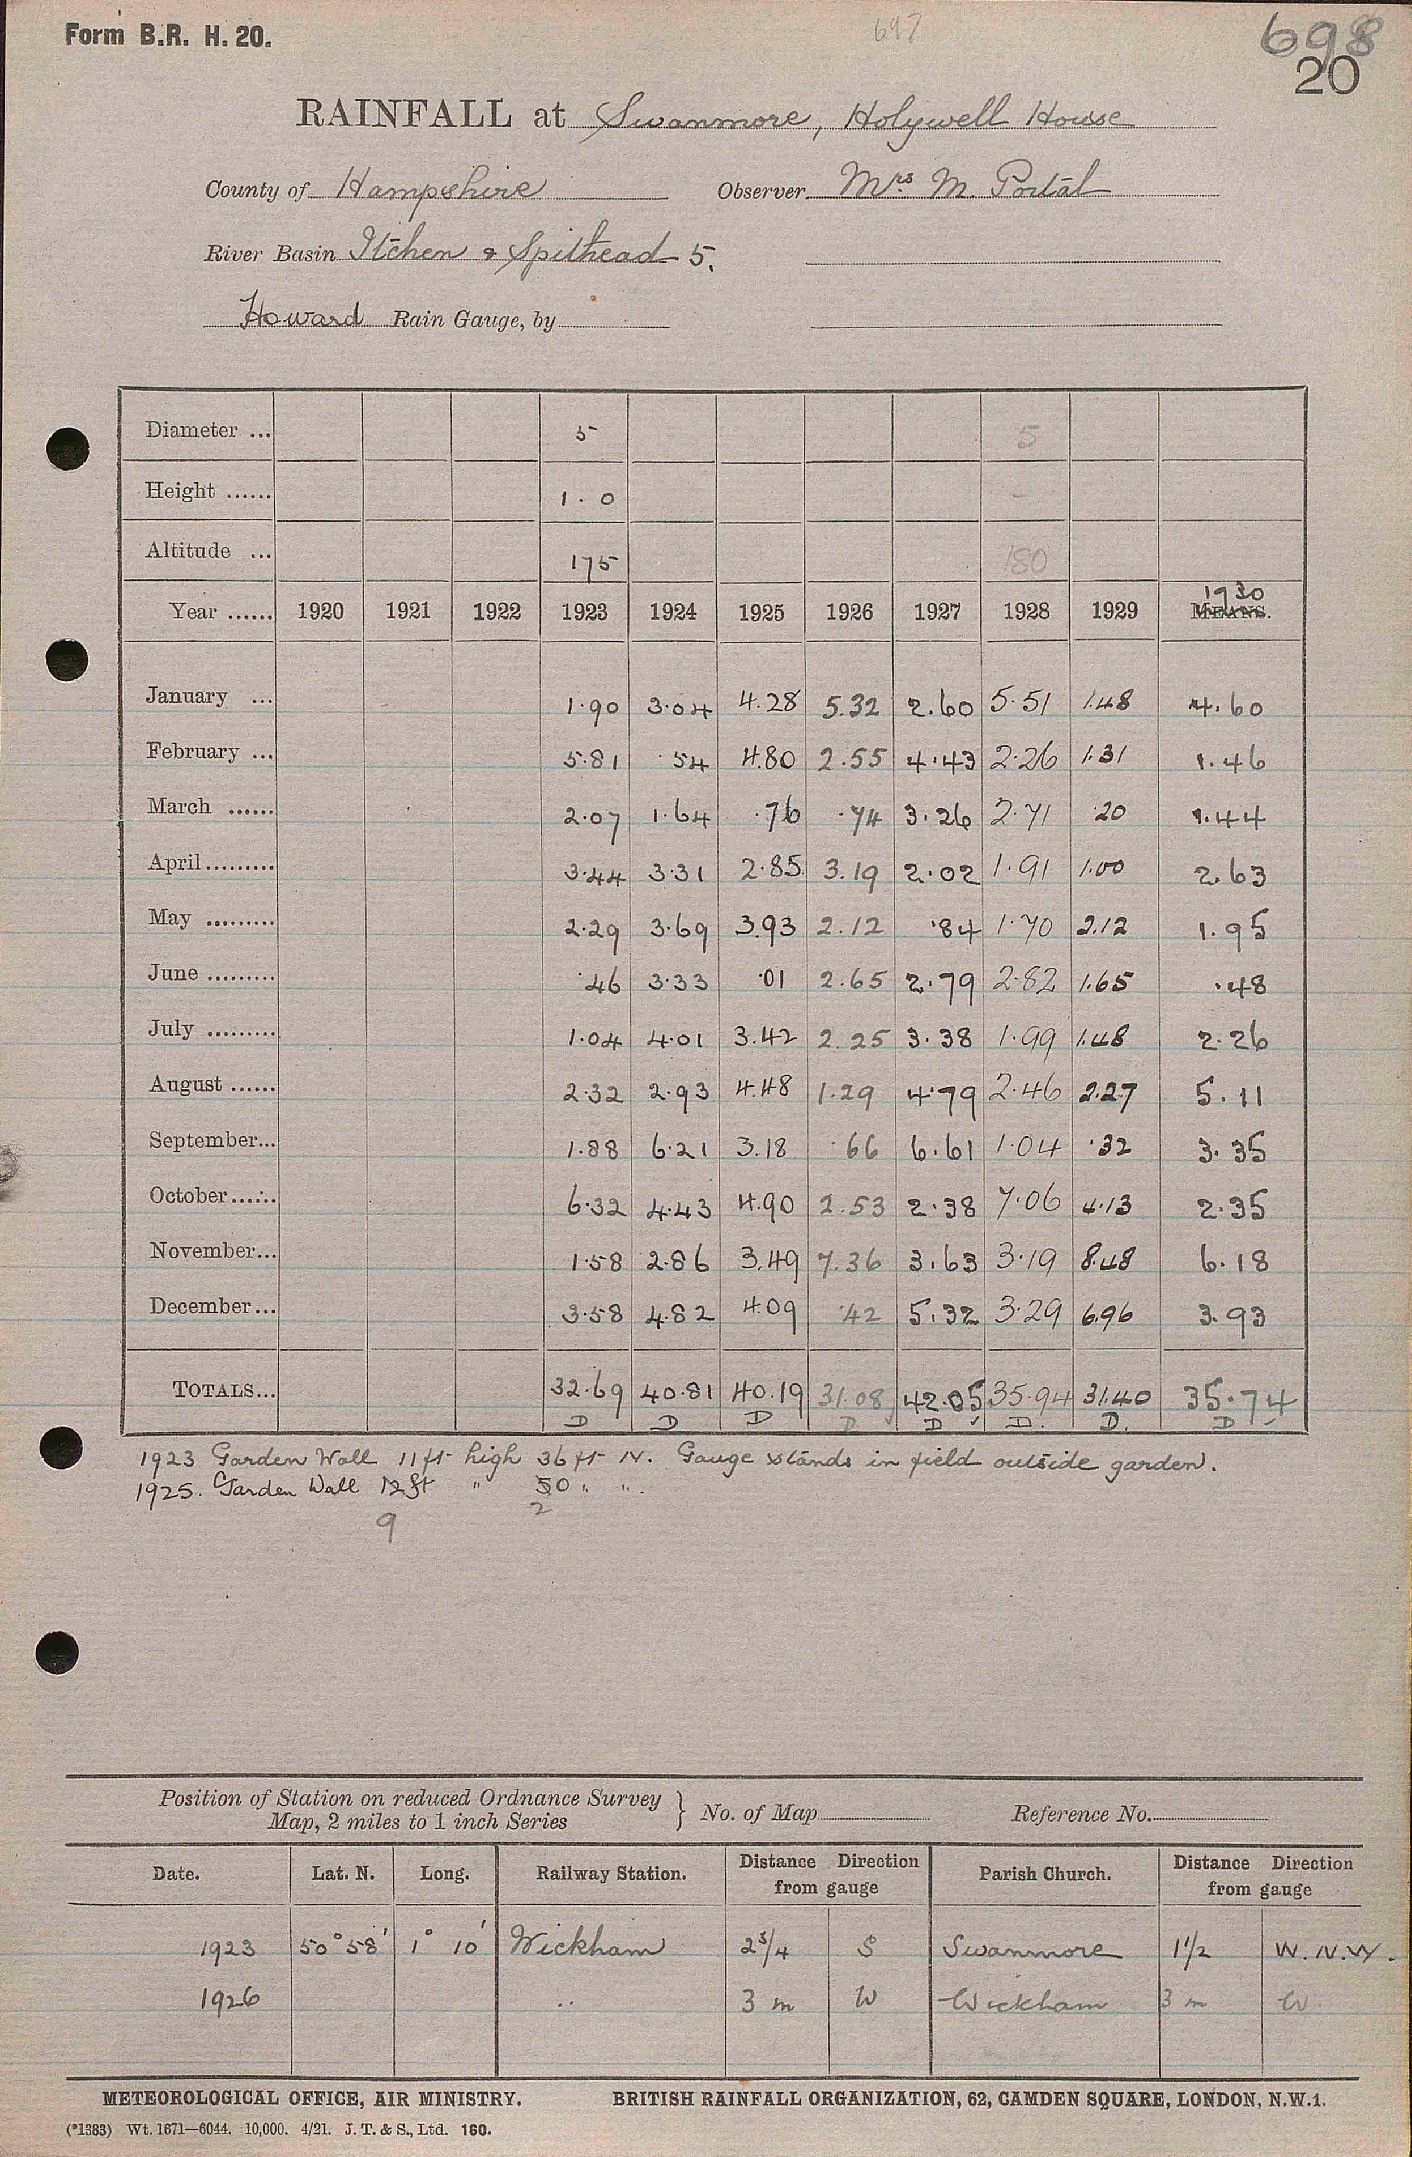 Form B.R. H. 20.
697
698
20
RAINFALL at Swanmore, Holywell House
County of Hampshire Observer Mrs M. Portal
River Basin Itchen & Spithead 5.
Howard Rain Gauge, by
Diameter ... 5 5
Height ...... 1.0 -
Altitude ... 175 180
1930
Year ...... 1920 1921 1922 1923 1924 1925 1926 1927 1928 1929 MEANS.
January ... 1.90 3.04 4.28 5.32 2.60 5.51 1.48 4.60
February ... 5.81 .54 4.80 2.55 4.43 2.26 1.31 1.46
March ...... 2.07 1.64 .76 .74 3.26 2.71 .20 1.44
April......... 3.44 3.31 2.85 3.19 2.02 1.91 1.00 2.63
May ......... 2.29 3.69 3.93 2.12 .84 1.70 2.12 1.95
June ......... .46 3.33 .01 2.65 2.79 2.82 1.65 .48
July ......... 1.04 4.01 3.42 2.25 3.38 1.99 1.48 2.26
August ...... 2.32 2.93 4.48 1.29 4.79 2.46 2.27 5.11
September... 1.88 6.21 3.18 .66 6.61 1.04 .32 3.35
October...... 6.32 4.43 4.90 2.53 2.38 7.06 4.13 2.35
November... 1.58 2.86 3.49 7.36 3.63 3.19 8.48 6.18
December... 3.58 4.82 4.09 .42 5.32 3.29 6.96 3.93
TOTALS... 32.69 40.81 40.19 31.08 42.05 35.94 31.40 35.74
D D D D D D. D. D
1923 Garden Wall 11 ft high 36 ft N. Gauge stands in field outside garden.
1925. Garden Wall 12 ft " 50 " "
9 2
Position of Station on reduced Ordnance Survey
Map, 2 miles to 1 inch Series } No. of Map Reference No.
Date. Lat. N. Long. Railway Station. Distance Direction from gauge Parish Church. Distance Direction from gauge
1923 50° 58' 1° 10' Wickham 2 3/4 S Swanmore 1 1/2 W.N.W.
1926 " 3 m W Wickham 3 m W
METEOROLOGICAL OFFICE, AIR MINISTRY. BRITISH RAINFALL ORGANIZATION, 62, CAMDEN SQUARE, LONDON, N.W.1.
(*1383) Wt. 1671—6044. 10,000. 4/21. J. T. & S., Ltd. 160.